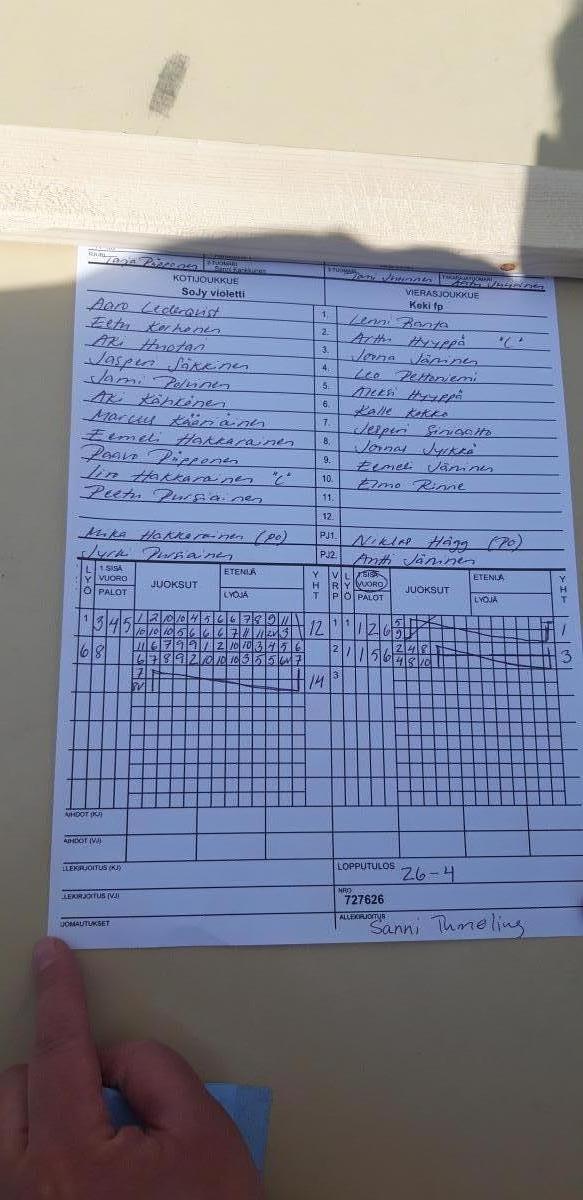 Tarja Piipponen
KOTIJOUKKUE
VIERASJOUKKUE
SoJy violetti
Keki fp
Aaro Lederqvist 1. Lenni Ranta
Eetu Korhonen 2. Arttu Hyyppä "C"
Aki Huotari 3. Joona Jäninen
Jasperi Jäkkinen 4. Leo
Jami 5. Aleksi Hyyppä
Aki Kähkönen 6. Kalle Kokko
Marcus Kääriäinen 7. Jesperi
Eemeli Hakkarainen 8. Joonas Jyrkkä
Paavo Piipponen 9. Eemeli Jäninen
Iiro Hakkarainen "C" 10. Elmo Rinne
Peetu Pursiainen 11.
12.
Mika Hakkarainen (PO) PJ1. Niklas Hägg (PO)
Jyrki Pursiainen PJ2. Antti Jäninen
LYÖ 1.SISÄ VUORO PALOT JUOKSUT ETENIJÄ LYÖJÄ YHT VRP LYÖ 1.SISÄ VUORO PALOT JUOKSUT ETENIJÄ LYÖJÄ YHT
1 3 4 5 1 2 10 10 4 5 6 6 7 8 9 11 12 1 1 1 2 6 5 1
9
6 8 11 6 7 9 9 1 2 10 10 3 4 5 6 2 1 1 5 6 2 4 8 3
6 7 8 9 2 10 10 10 3 5 5 6V 7 4 8 10
7 14 3
8V
AIHDOT (KJ)
AIHDOT (VJ)
LLEKIRJOITUS (KJ) LOPPUTULOS 26-4
LLEKIRJOITUS (VJ) NRO 727626
UOMAUTUKSET ALLEKIRJOITUS Sanni